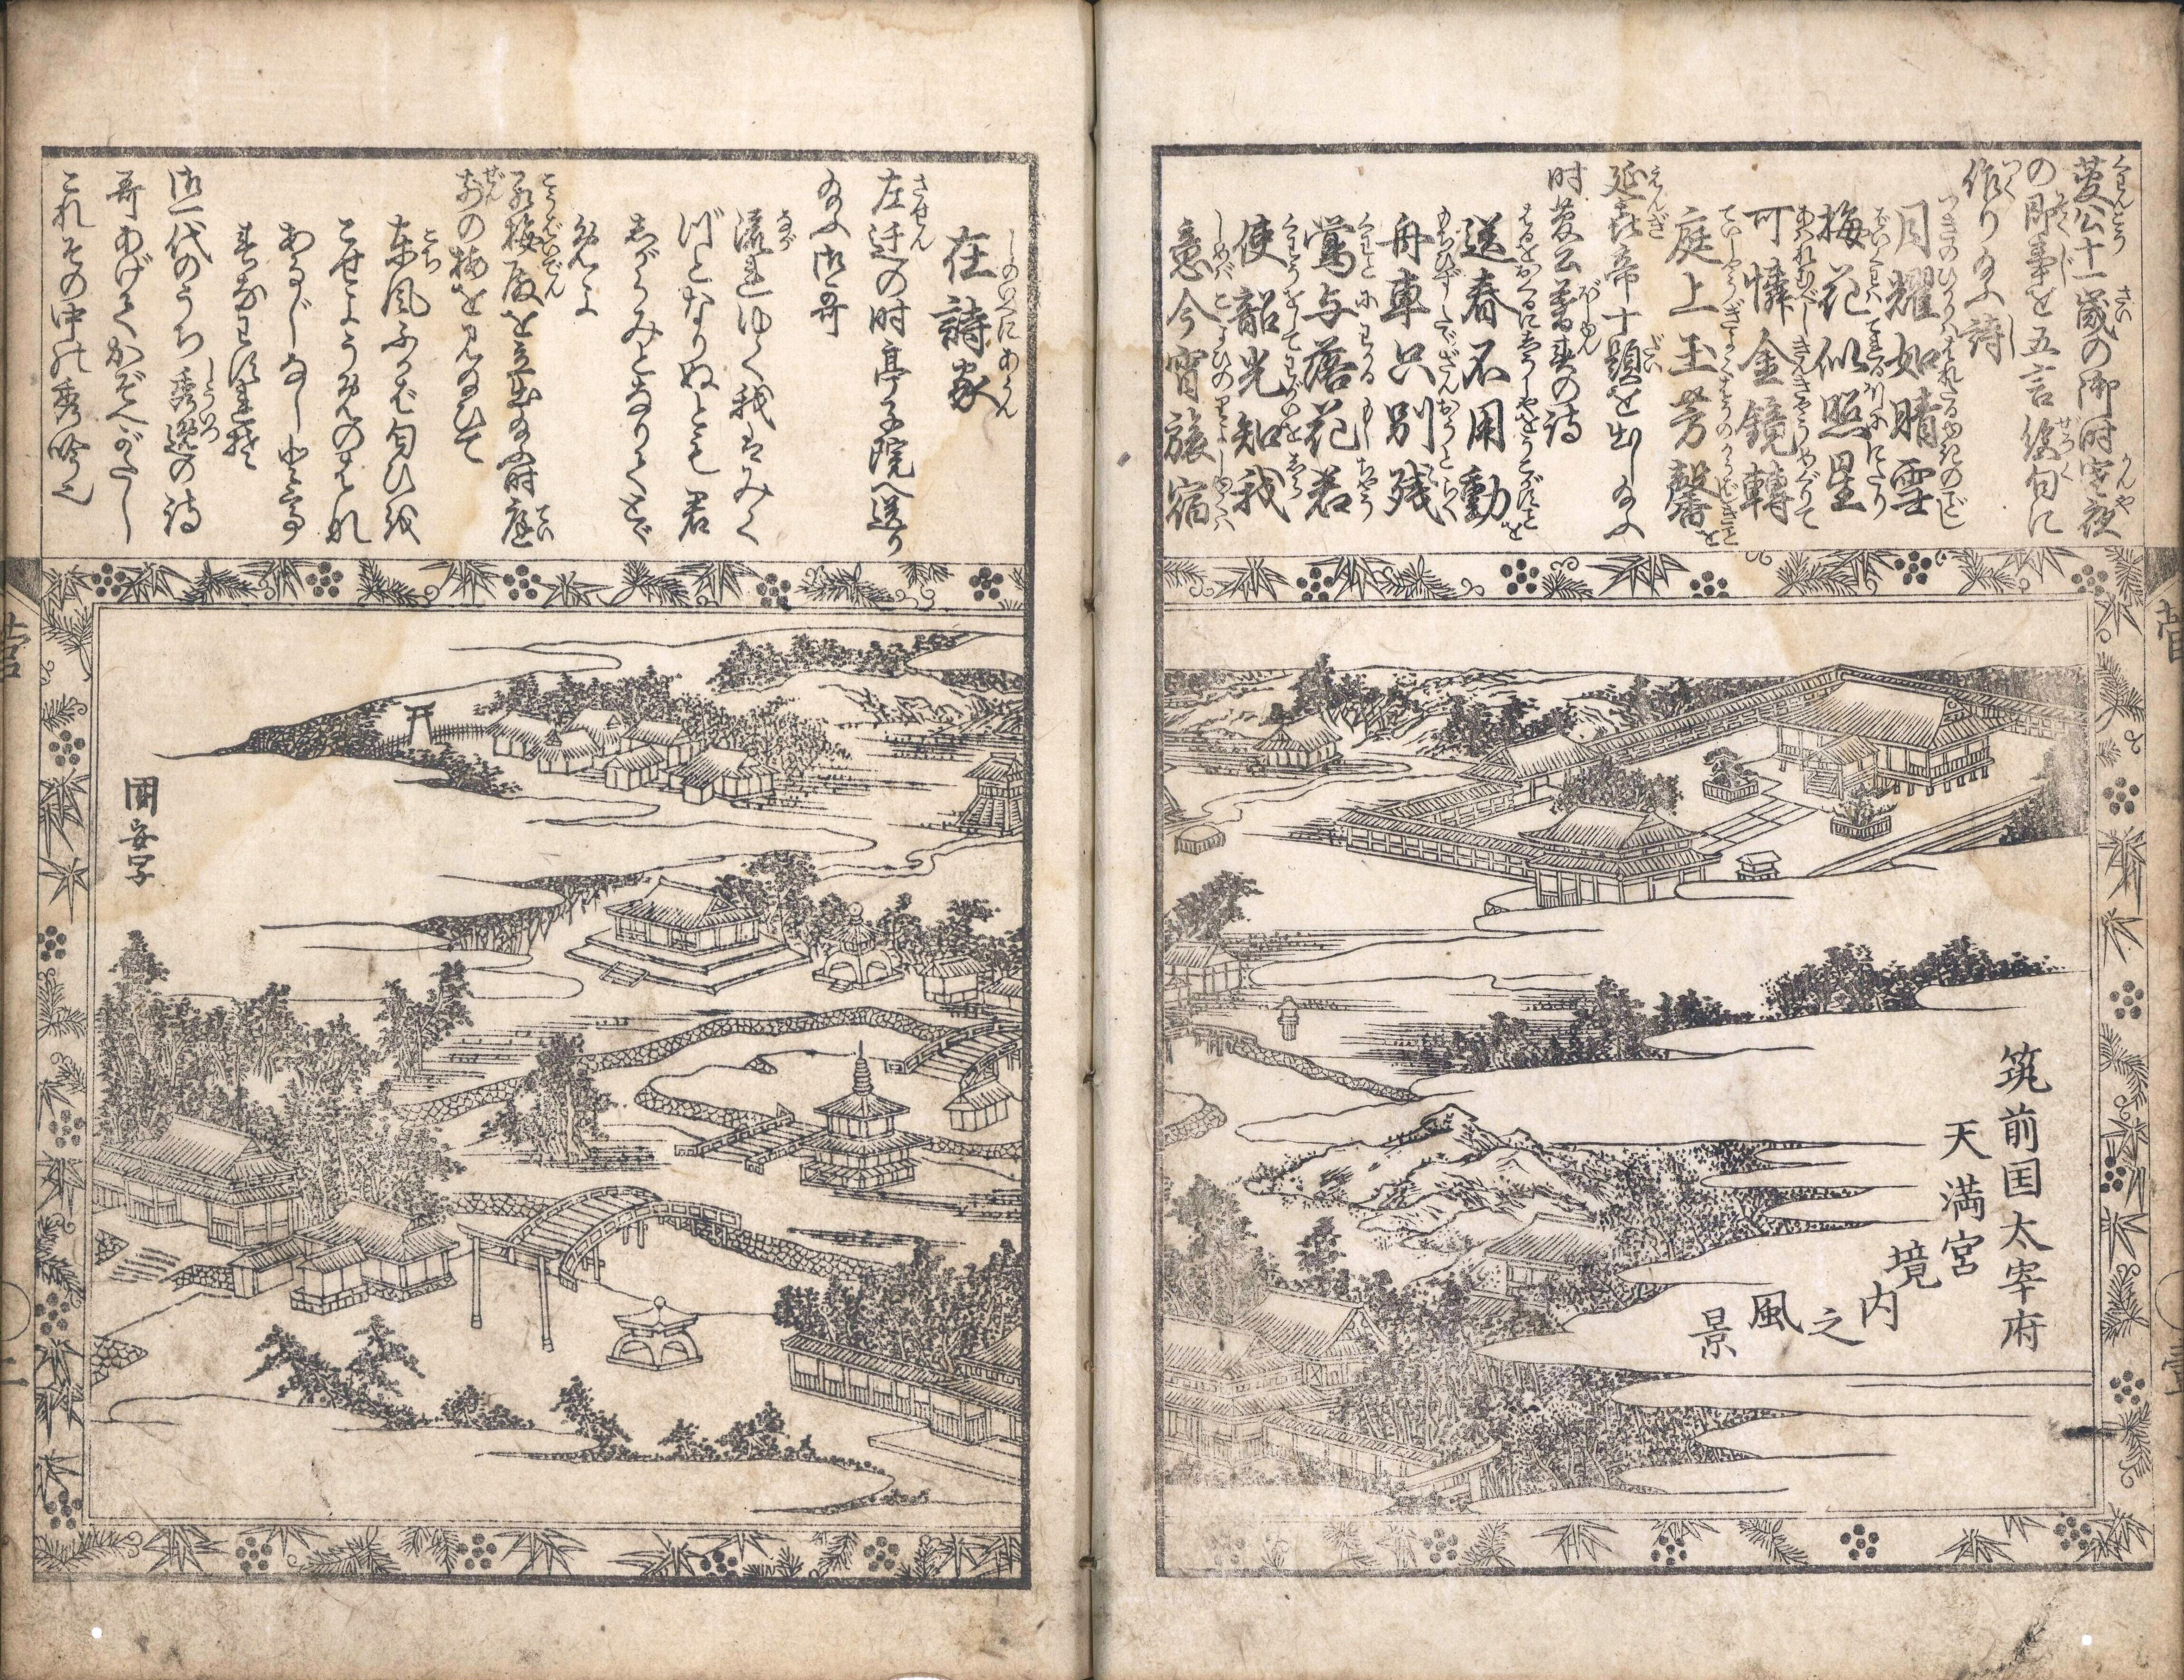 菅公十一歳の御時定夜
の即事を五言絶句に
作り給ふ詩
月耀如晴雪
梅花似照星
可憐金鏡轉
庭上玉芳馨
延喜帝十題を出し給ふ
时菅公暮春の詩
送春不用動
舟車只別残
鶯与落花若
使韶光知我
意今宵旅宿
在詩家
左迁の时亭子院へ送り
給ふ御哥
流れゆく我はみく
づとなりぬとも君
しがらみとなりてとゞ
めよ
紅梅殿を立出給ふ时庭
前の梅を見給ひて
東風ふかば匂ひ越
こせようめのはな
あるじなしとて
春なわすれそ
御一代のうち秀逸の詩
哥あげてかぞへがたし
これその中の秀吟也
筑前国太宰府
天満宮
境内之風景
国安写